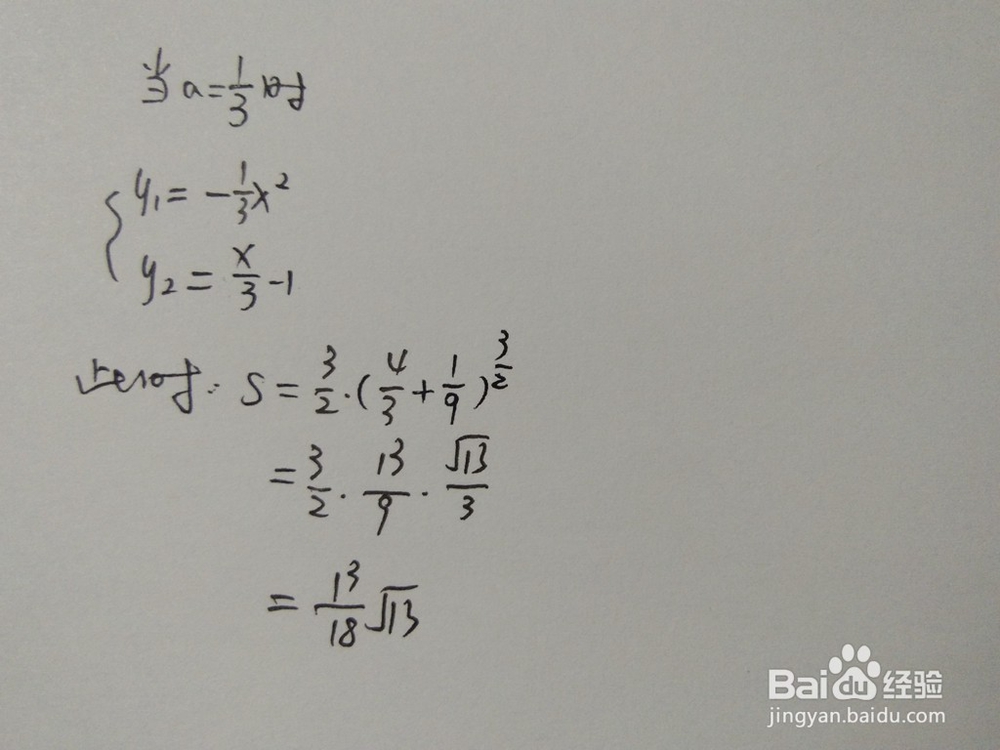 当a=1/3时
y₁=-1/3x²
y₂=x/3-1
此时:S=3/2·(4/3+1/9)^(3/2)
=3/2·13/9·√13/3
=13/18√13
Baidu经验
jingyan.baidu.com